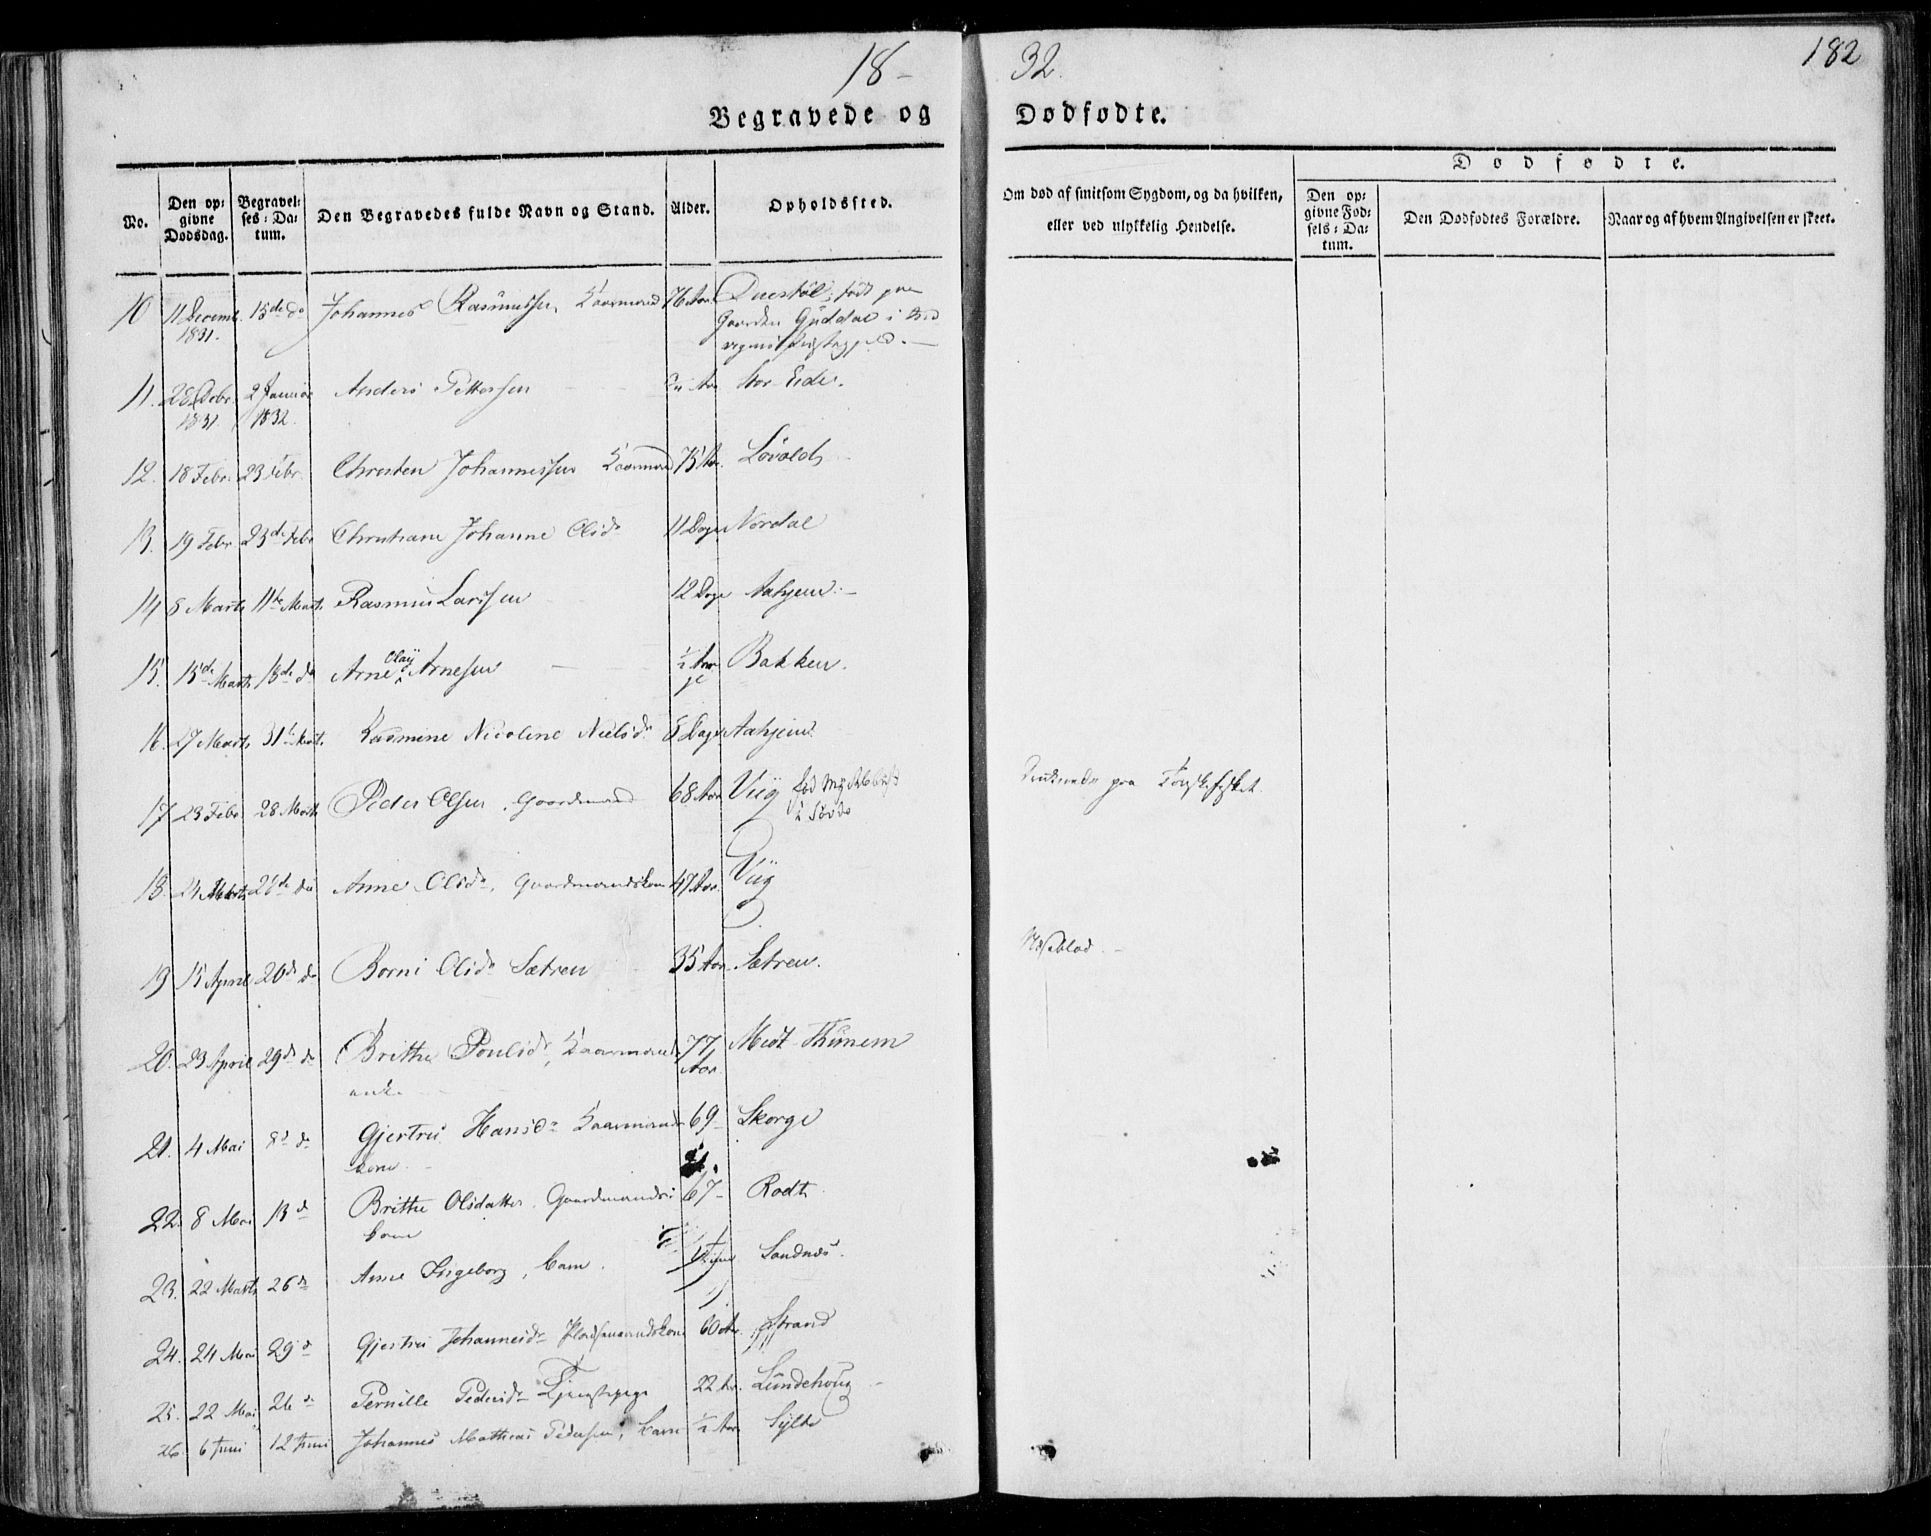 18-
32.
182
Begravede og
Dødfødte.
No.
Den op-
givne
Dødsdag.
Begravel-
ses-Da-
tum.
Den Begravedes fulde Navn og Stand.
Alder.
Opholdssted.
Om død af smitsom Sygdom, og da hvilken,
eller ved ulykkelig Hendelse.
Dødfødte.
Den op-
givne Fød-
sels-Da-
tum.
Den Dødfødtes Forældre.
Naar og af hvem Angivelsen er skeet.
10 11 Decemb. 1831. 15de do Johannes Rasmussen, Kaarmand 76 Aar. født paa
Gaarden Guddal i
11. 28 Debr. 1831. 2 Januar 1832. Anders Pettersen Aar Eide.
12. 18 Febr. 23 Febr. Christen Johannessen Kaarmand 75 Aar. Løvold
13. 19 Febr. 23de Febr Christiane Johanne Olsdr 11 Dage Nordal
14 8 Marts 11te Marts. Rasmus Larssen 12 Dage Aahjem.
15. 15de Marts 18de do Arne Olay Arnesen 1/2 Aar Bakken.
16. 27 Marts 31te Marts. Rasmine Nicoline Nielsdr 8 Dage Aahjem.
17 23 Febr. 28 Marts Peder Olsen, Gaardmand 68 Aar Viig fød Myklebust
i Søvde
Druknede paa Torskefisket.
18. 21 Marts 26de do Anne Olsdr, Gaardmandskone 47 Aar. Viig
19 15 April 20de do Borni Olsdr Sætren 35 Aar Sætren.
Noseblod.
20. 23 April 29de do Brithe Poulsdr, Kaarmands
enke. 77 Aar. Midt Thunem
21. 4 Mai 8de do Gjertru Hansdr Kaarmands
kone. 69 Skorge
22. 8 Mai 13 d Brithe Olsdatter, Gaardmands
kone 67 Rødt
23. 22 Marts 26 d Anne Ingeborg, barn. Sandnæs.
24. 24 Mai 29 d Gjertru Johannesdr Pladsmandskone 60 Aar. Strand
25. 22 Mai 26 d Pernille Pedersdr Tjenestepige 22 Aar. Lundehoug
26. 6 Juni 12 Juni Johannes Mathias Pedersen, barn 1/2 Aar Sylte